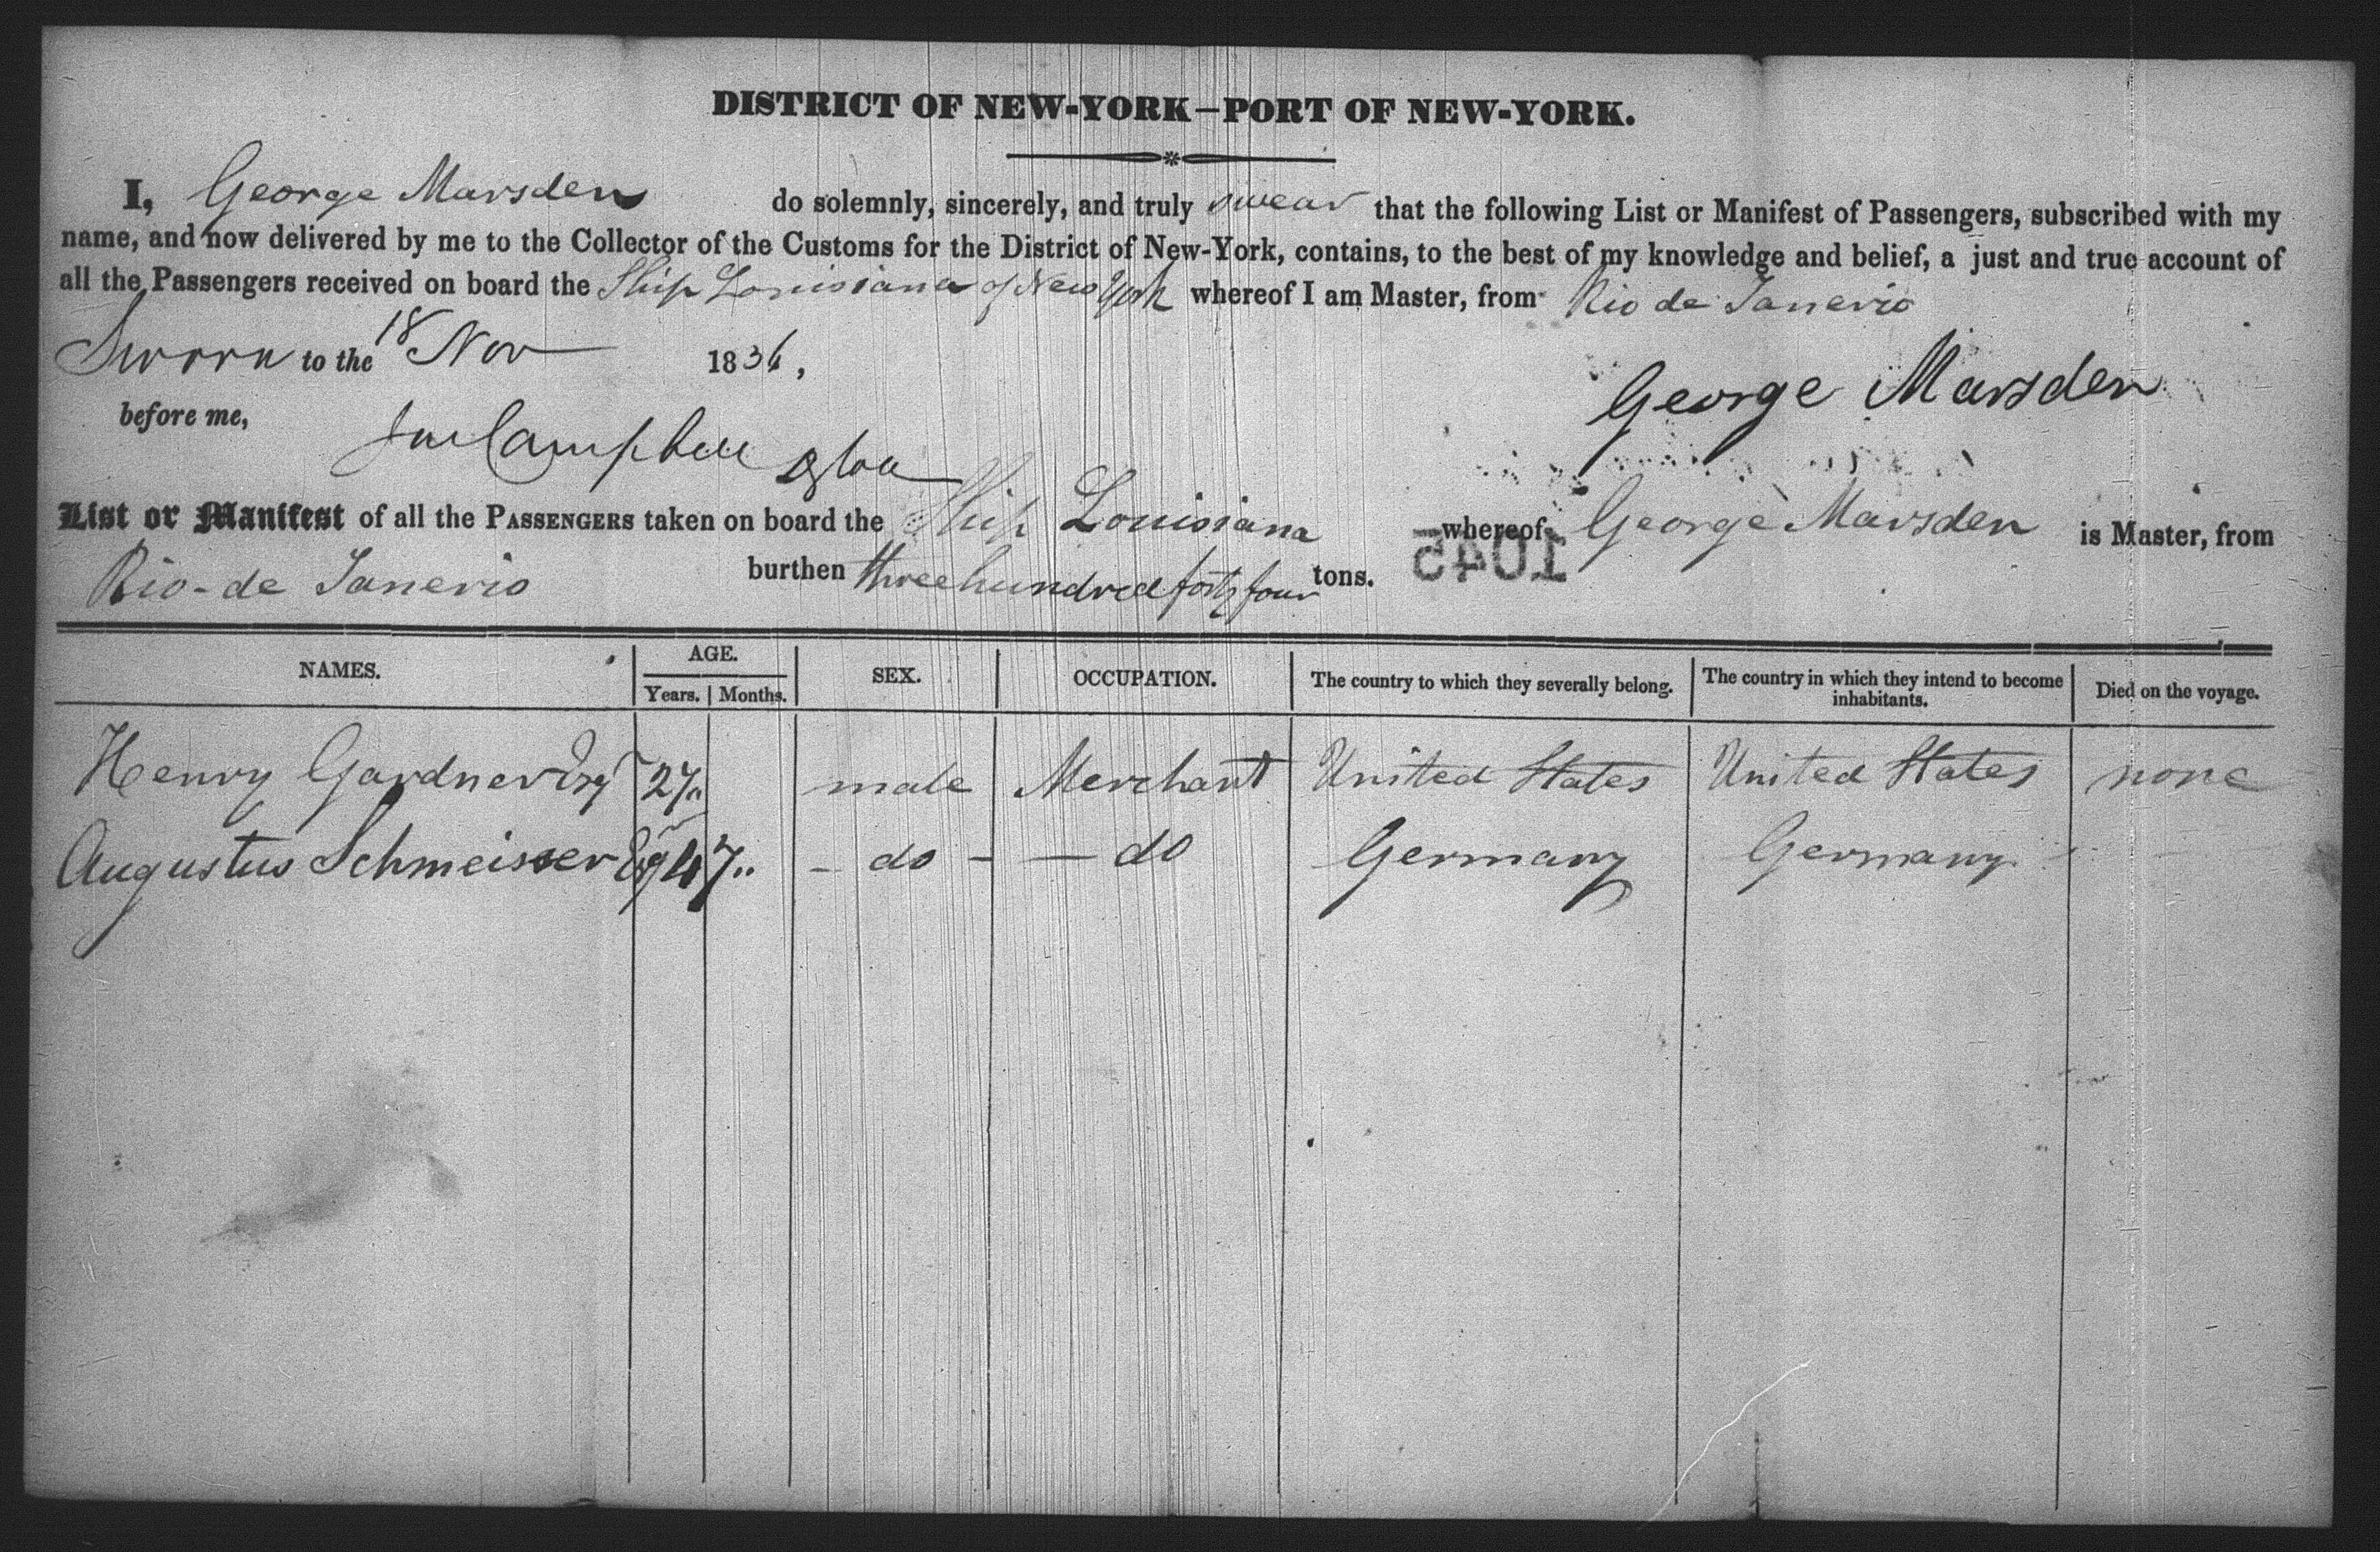 DISTRICT OF NEW-YORK—PORT OF NEW-YORK.
I, George Marsden do solemnly, sincerely, and truly swear that the following List or Manifest of Passengers, subscribed with my
name, and now delivered by me to the Collector of the Customs for the District of New-York, contains, to the best of my knowledge and belief, a just and true account of
all the Passengers received on board the Ship Louisiana of New York whereof I am Master, from Rio de Janerio
Sworn to the 18 Nov 1836,
before me, George Marsden
Campbell
List or Manifest of all the PASSENGERS taken on board the Ship Louisiana whereof George Marsden is Master, from
Rio-de Janerio burthen three hundred forty four tons. 1045
NAMES. AGE. SEX. OCCUPATION. The country to which they severally belong. The country in which they intend to become inhabitants. Died on the voyage.
Years. Months.
Henry Gardner Esq 27 male Merchant United States United States none
Augustus Schmeisser Esq 47 - do - - do Germany Germany